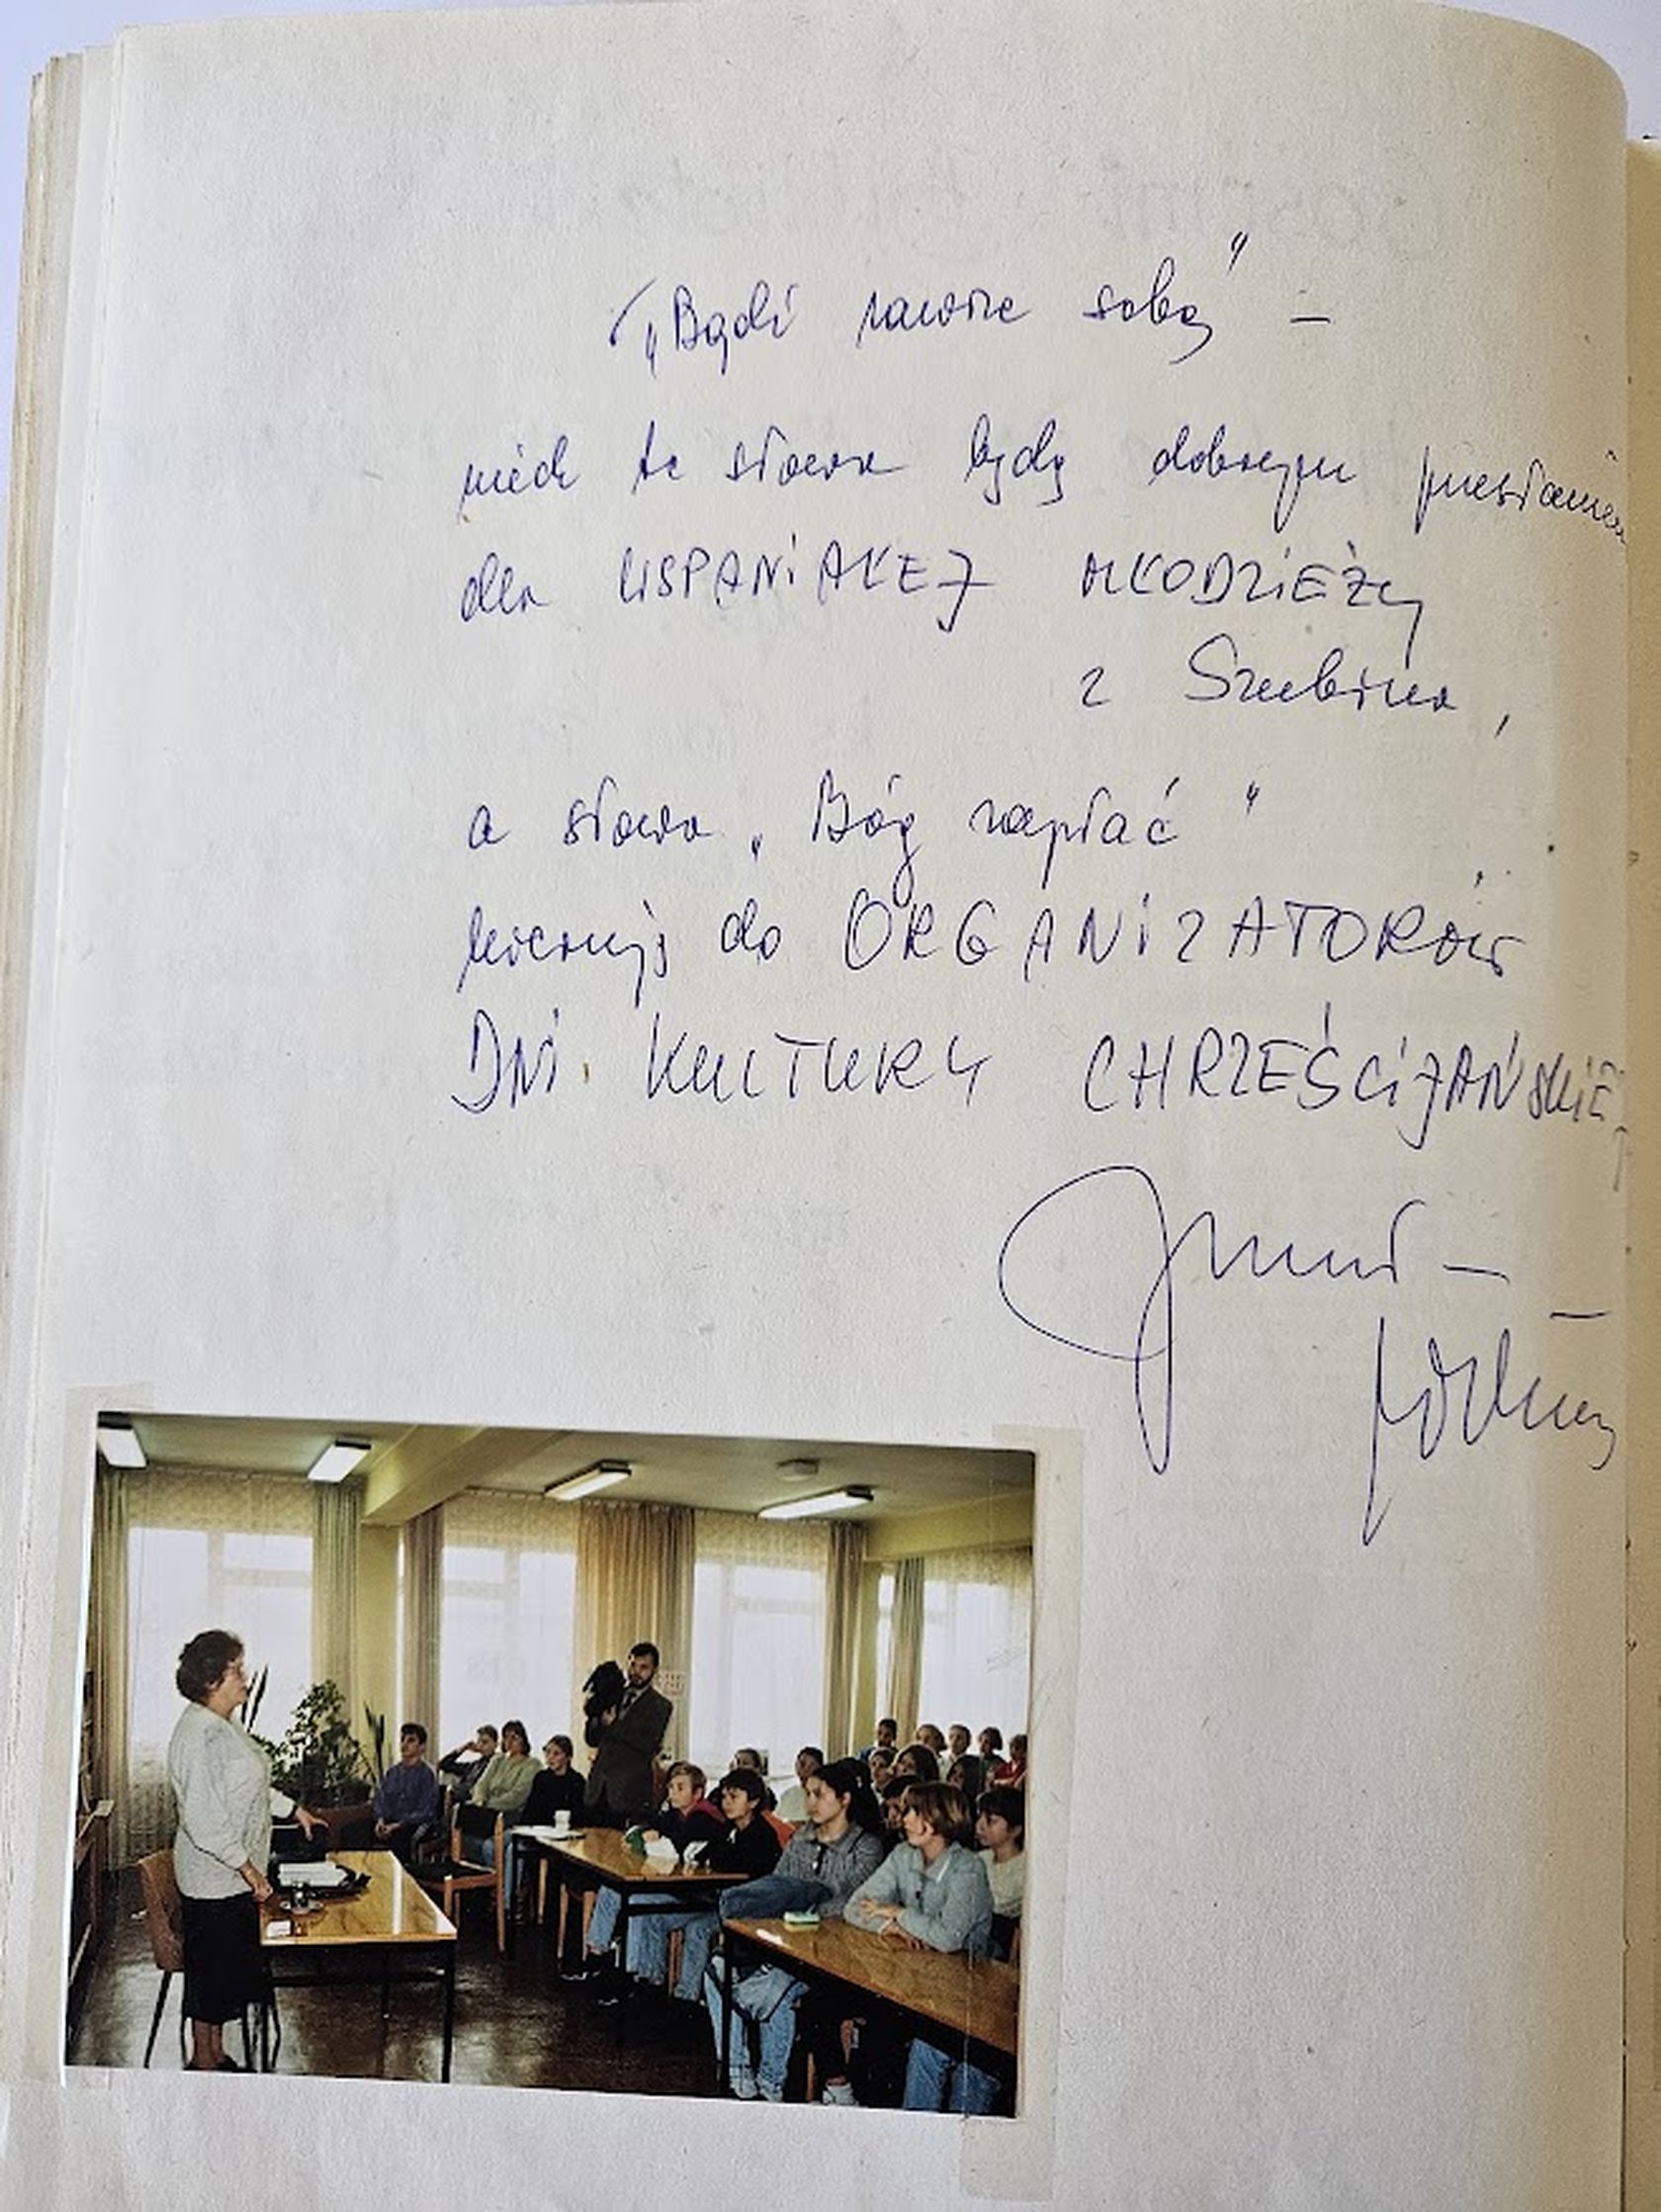 „Bądź zawsze sobą” –
niech te słowa będą dobrym przesłaniem
dla WSPANIAŁEJ MŁODZIEŻY
z Szubina,
a słowa „Bóg zapłać”
kieruję do ORGANIZATORÓW
DNI KULTURY CHRZEŚCIJAŃSKIEJ